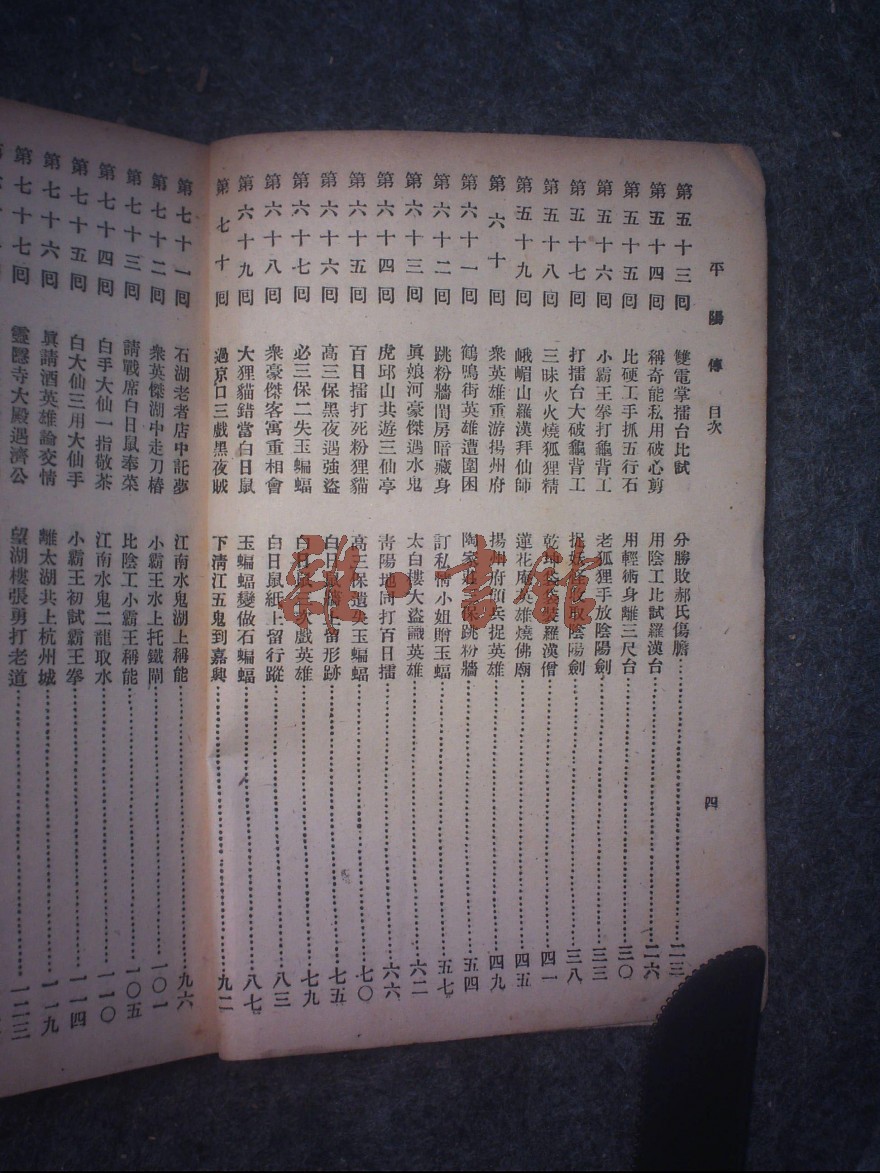 平陽傳 目次 四
第五十三回 雙電掌擂台比試 分勝敗郝氏傷膽 二三
第五十四回 稱奇能私用破心剪 用陰工比試羅漢台 二六
第五十五回 比硬工手抓五行石 用輕術身離三尺台 三〇
第五十六回 小霸王拳打龜背工 老狐狸手放陰陽劍 三三
第五十七回 打擂台大破龜背工 捉妖怪收取陰陽劍 三八
第五十八回 三昧火火燒狐狸精 裝羅漢僧 四一
第五十九回 峨嵋山羅漢拜仙師 蓮花庵英雄燒佛廟 四五
第六十回 衆英雄重游揚州府 揚州府領兵捉英雄 四九
第六十一回 鶴鳴街英雄遭圍困 陶家莊三保跳粉牆 五四
第六十二回 跳粉牆閨房暗藏身 訂私情小姐贈玉蝠 五七
第六十三回 眞娘河豪傑遇水鬼 太白樓大盜識英雄 六二
第六十四回 虎邱山共遊三仙亭 青陽地同打百日擂 六六
第六十五回 百日擂打死粉狸貓 高三保遺失玉蝙蝠 七〇
第六十六回 高三保黑夜遇強盜 白日鼠牆上留形跡 七五
第六十七回 必三保二失玉蝙蝠 白日鼠三次戲英雄 七九
第六十八回 衆豪傑客寓重相會 白日鼠紙上留行蹤 八三
第六十九回 大狸貓錯當白日鼠 玉蝙蝠變做石蝙蝠 八七
第七十回 過京口三戲黑夜賊 下淸江五鬼到嘉興 九二
第七十一回 石湖老者店中記夢 江南水鬼湖上稱能 九六
第七十二回 衆英傑湖中走刀樁 小霸王水上托鐵閘 一〇一
第七十三回 請戰席白日鼠奉菜 比陰工小霸王稱能 一〇五
第七十四回 白手大仙一指敬茶 江南水鬼二龍取水 一一〇
第七十五回 白大仙三用大仙手 小霸王初試霸王拳 一一四
第七十六回 眞請酒英雄論交情 離太湖共上杭州城 一一九
第七十七回 靈隱寺大殿遇濟公 望湖樓張勇打老道 一二三
雜·書館